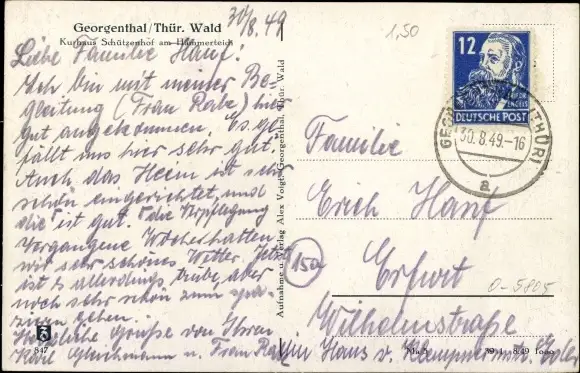 Georgenthal/Thür. Wald
Kurhaus Schützenhof am Hammerteich
30/8.49
Liebe Familie Hanf!
Ich bin mit meiner Be-
gleitung (Frau Rabe) hier
gut angekommen. Es ge-
fällt uns hier sehr gut.
Auch das Heim ist sehr
schön eingerichtet und
die Verpflegung ist gut.
Vergangene Woche hatten
wir sehr schönes Wetter. Jetzt
ist es allerdings trübe, aber
noch sehr schön zum spa-
zieren gehen.
Herzliche Grüße von Ihren
Karl u. Frau
847
Aufnahme u. Verlag Alex Voigt, Georgenthal, Thür. Wald
1,50
12
ENGELS
DEUTSCHE POST
GEORGENTHAL (THÜR)
30.8.49.-16
a
Familie
Erich Hanf
15a
Erfurt
0-5805
Wilhelmstraße
in Haus v. Klempnermstr.